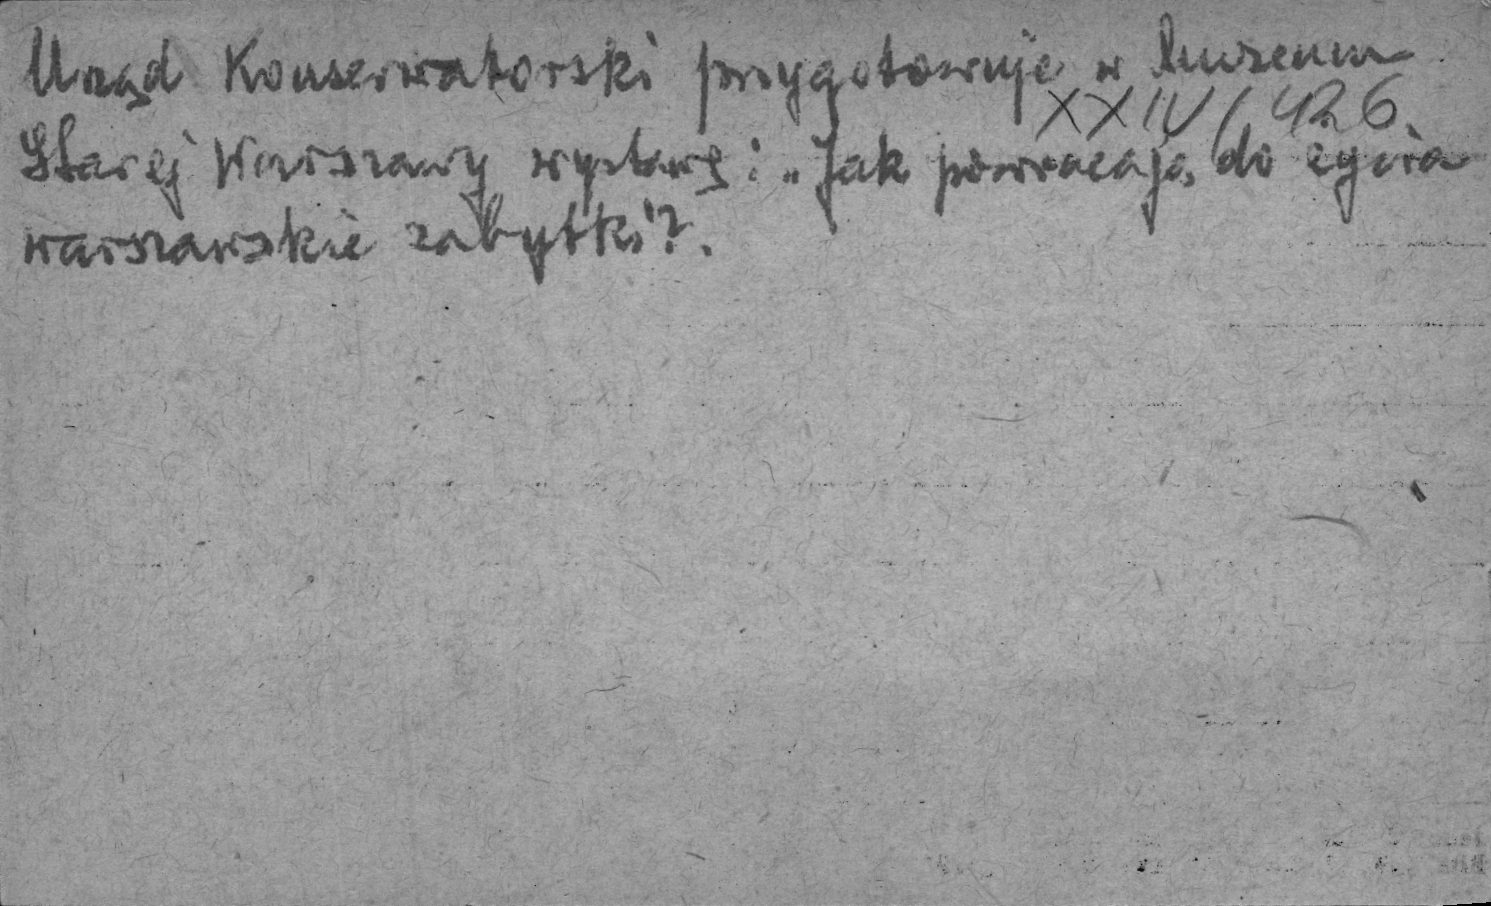 Urząd Konserwatorski przygotowuje w Muzeum
XXIV/426
Starej Warszawy wystawę: „Jak powracają do życia
warszawskie zabytki?.